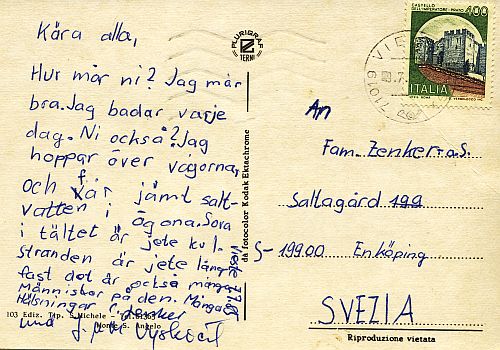 Kära alla,
Hur mår ni? Jag mår
bra. Jag badar varje
dag. Ni också? Jag
hoppar över vågorna,
och får jämt salt-
vatten i ögona. Sova
i tältet är jete kul.
Stranden är jete lång
fast det är också många
Människor på den. Många
Hälsningar
und
103 Ediz. Tip. S. Michele
Monte S. Angelo
PLURIGRAF
TERNI
da fotocolor Kodak Ektachrome
CASTELLO
DELL'IMPERATORE - PRATO
400
ITALIA
71019
An
Fam. Zenker a.S.
Saltagård 199
S-19900 Enköping
SVEZIA
Riproduzione vietata